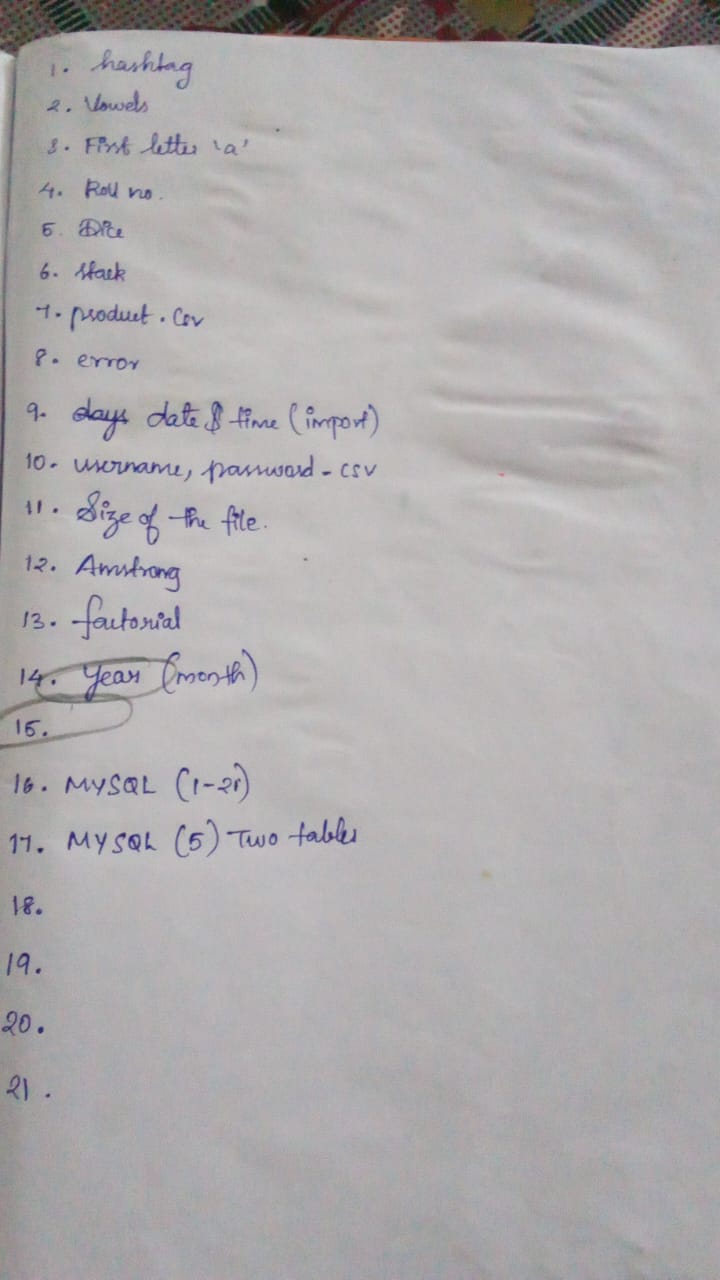 1. hashtag
2. Vowels
3. First letter 'a'
4. Roll no.
5. Dice
6. Stack
7. product.csv
8. error
9. days date & time (import)
10. username, password - csv
11. Size of the file.
12. Amstrong
13. factorial
14. Year (month)
15.
16. MYSQL (1-21)
17. MYSQL (5) Two tables
18.
19.
20.
21.